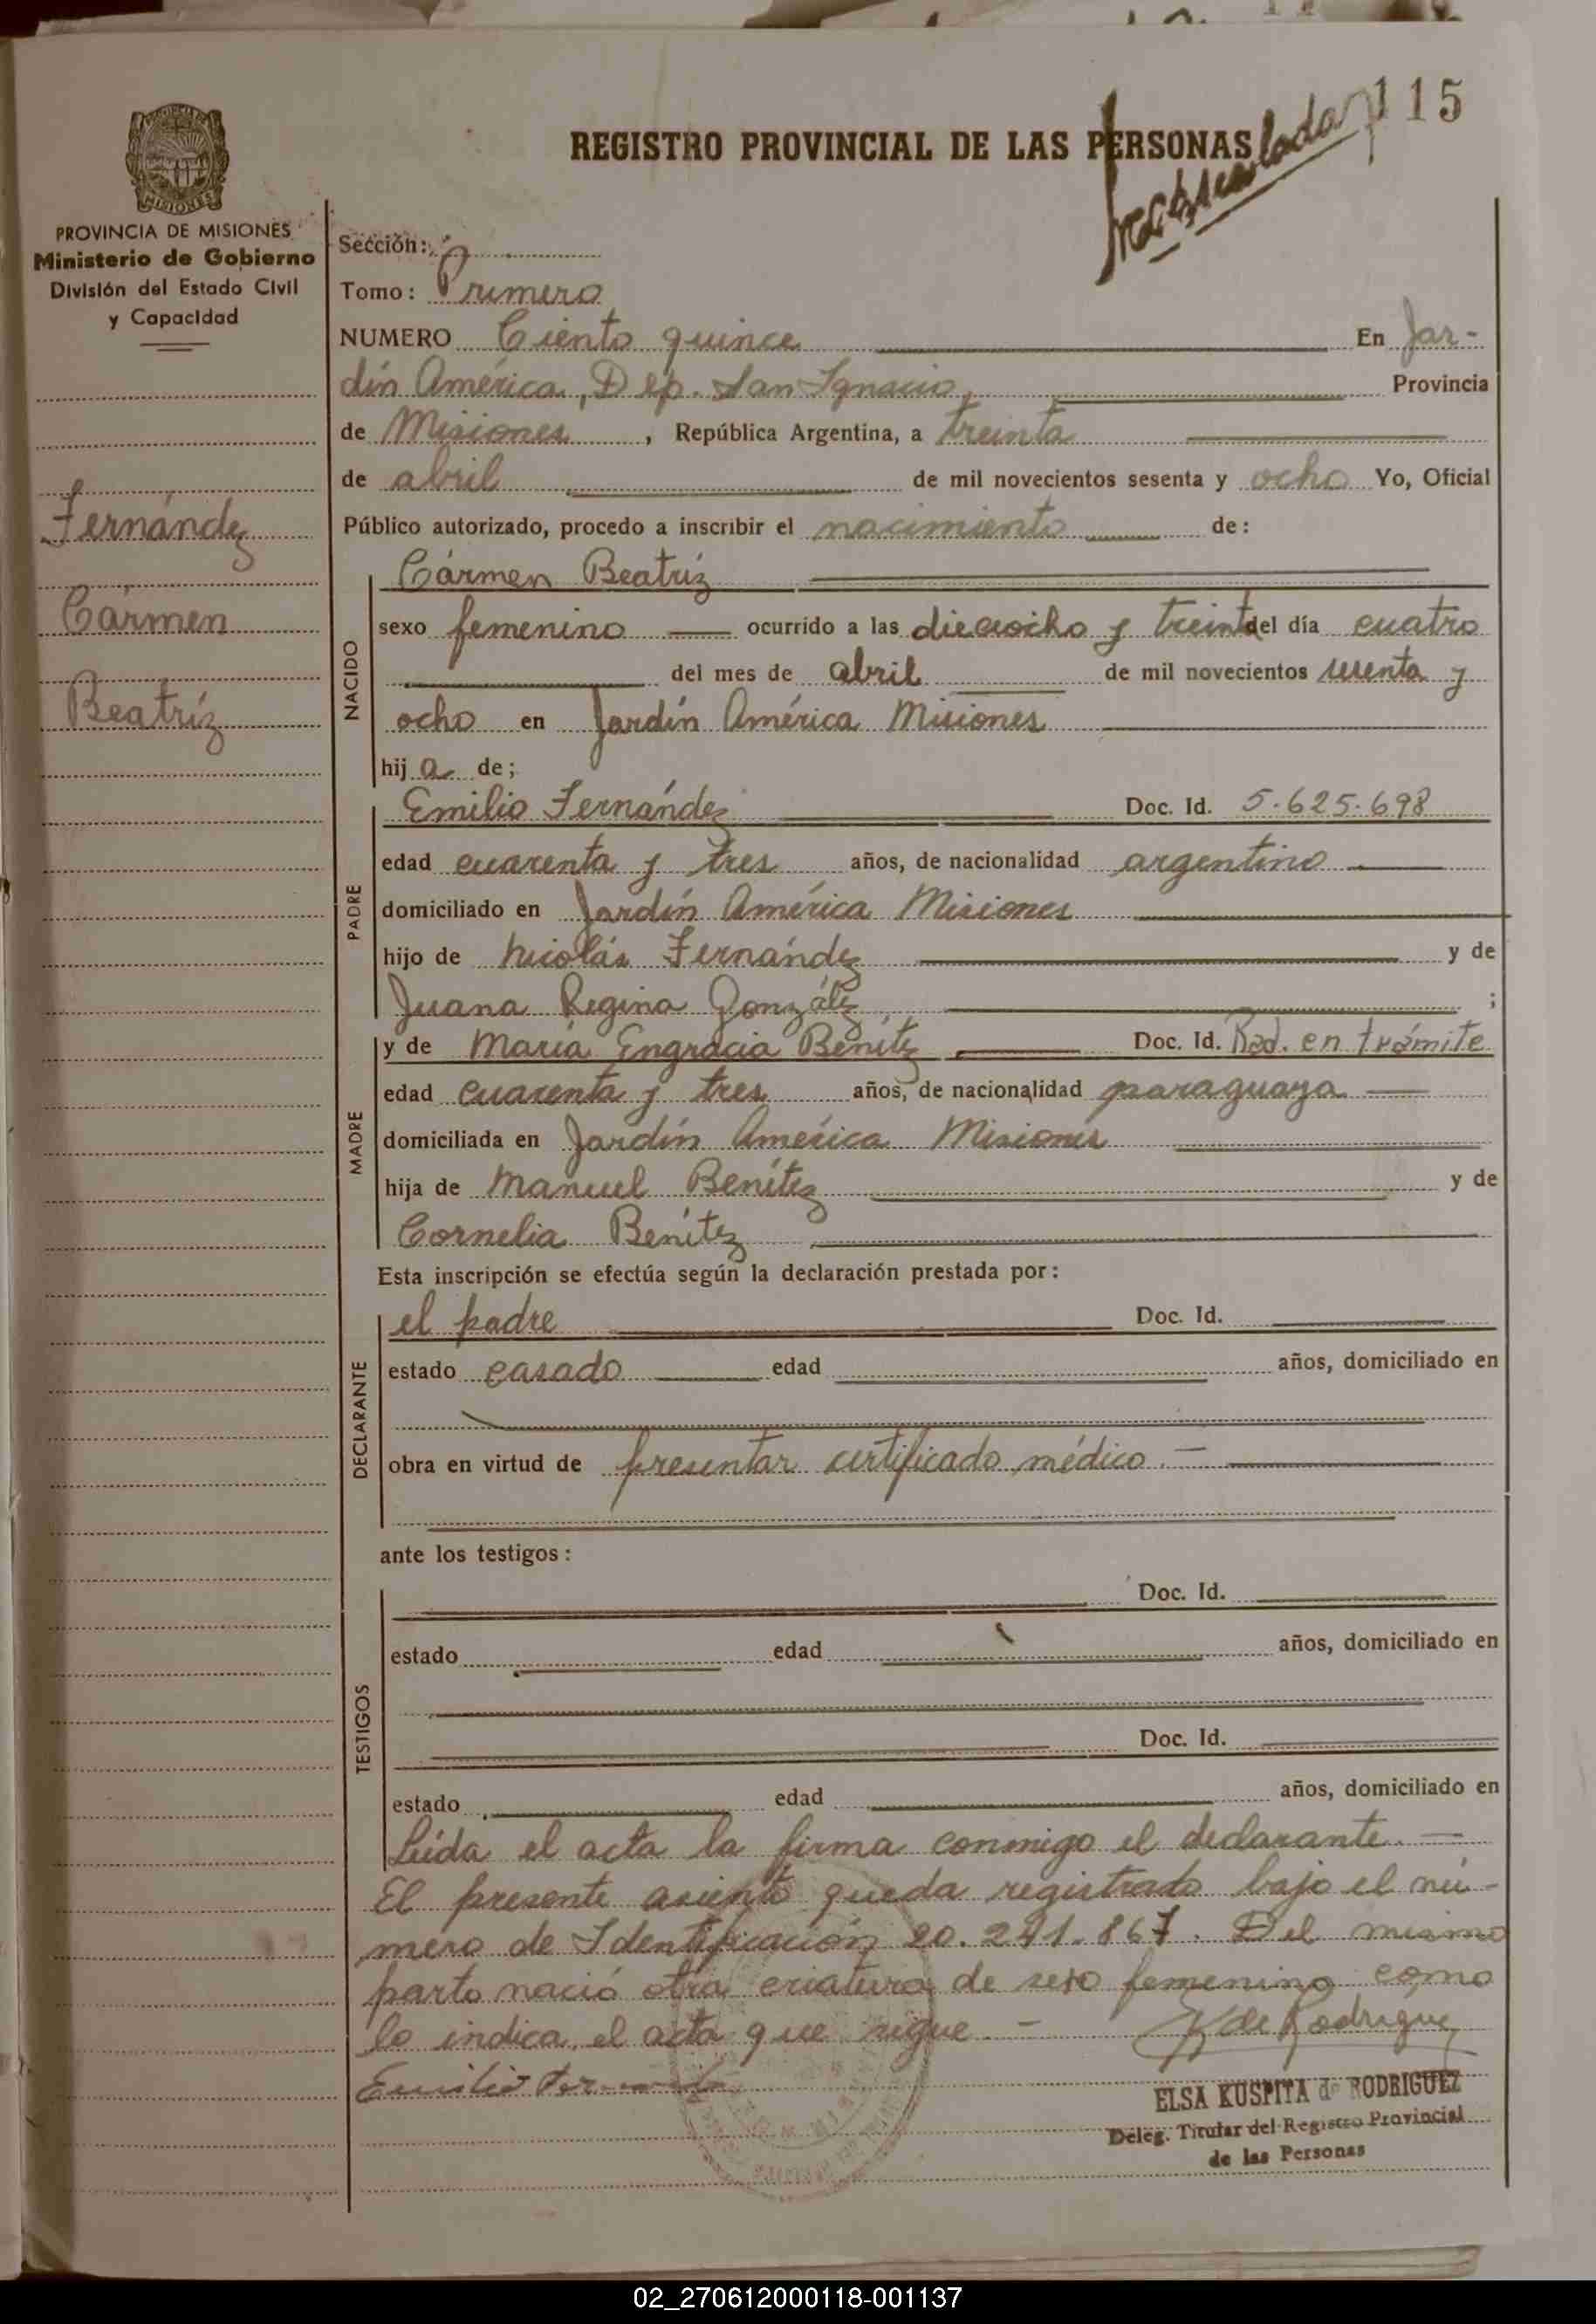 115
REGISTRO PROVINCIAL DE LAS PERSONAS
MISIONES
PROVINCIA DE MISIONES
Ministerio de Gobierno
División del Estado Civil
y Capacidad
Fernández
Cármen
Beatríz
Sección:
Tomo: Primero
NUMERO Ciento quince En Jar-
dín América, Dep. San Ignacio, Provincia
de Misiones, República Argentina, a treinta
de abril de mil novecientos sesenta y ocho Yo, Oficial
Público autorizado, procedo a inscribir el nacimiento de:
NACIDO
Cármen Beatríz
sexo femenino ocurrido a las dieciocho y treinta del día cuatro
del mes de abril de mil novecientos sesenta y
ocho en Jardín América Misiones
hija de;
PADRE
Emilio Fernández Doc. Id. 5.625.698
edad cuarenta y tres años, de nacionalidad argentino
domiciliado en Jardín América Misiones
hijo de Nicolás Fernández y de
Juana Regina González ;
MADRE
y de María Engracia Benítez Doc. Id. Rad. en trámite
edad cuarenta y tres años, de nacionalidad paraguaya
domiciliada en Jardín América Misiones
hija de Manuel Benítez y de
Cornelia Benítez
Esta inscripción se efectúa según la declaración prestada por:
DECLARANTE
el padre Doc. Id.
estado casado edad años, domiciliado en
obra en virtud de presentar certificado médico.-
ante los testigos:
TESTIGOS
Doc. Id.
estado edad años, domiciliado en
Doc. Id.
estado edad años, domiciliado en
Leída el acta la firma conmigo el declarante.-
El presente asiento queda registrado bajo el nú-
mero de Identificación 20.241.867. Del mismo
parto nació otra criatura de sexo femenino como
lo indica el acta que sigue.-
K de Rodriguez
ELSA KUSPITA de RODRIGUEZ
Deleg. Titular del Registro Provincial
de las Personas
02_270612000118-001137